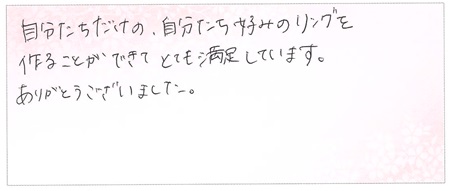 自分たちだけの、自分たち好みのリングを
作ることができて とても満足しています。
ありがとうございました。